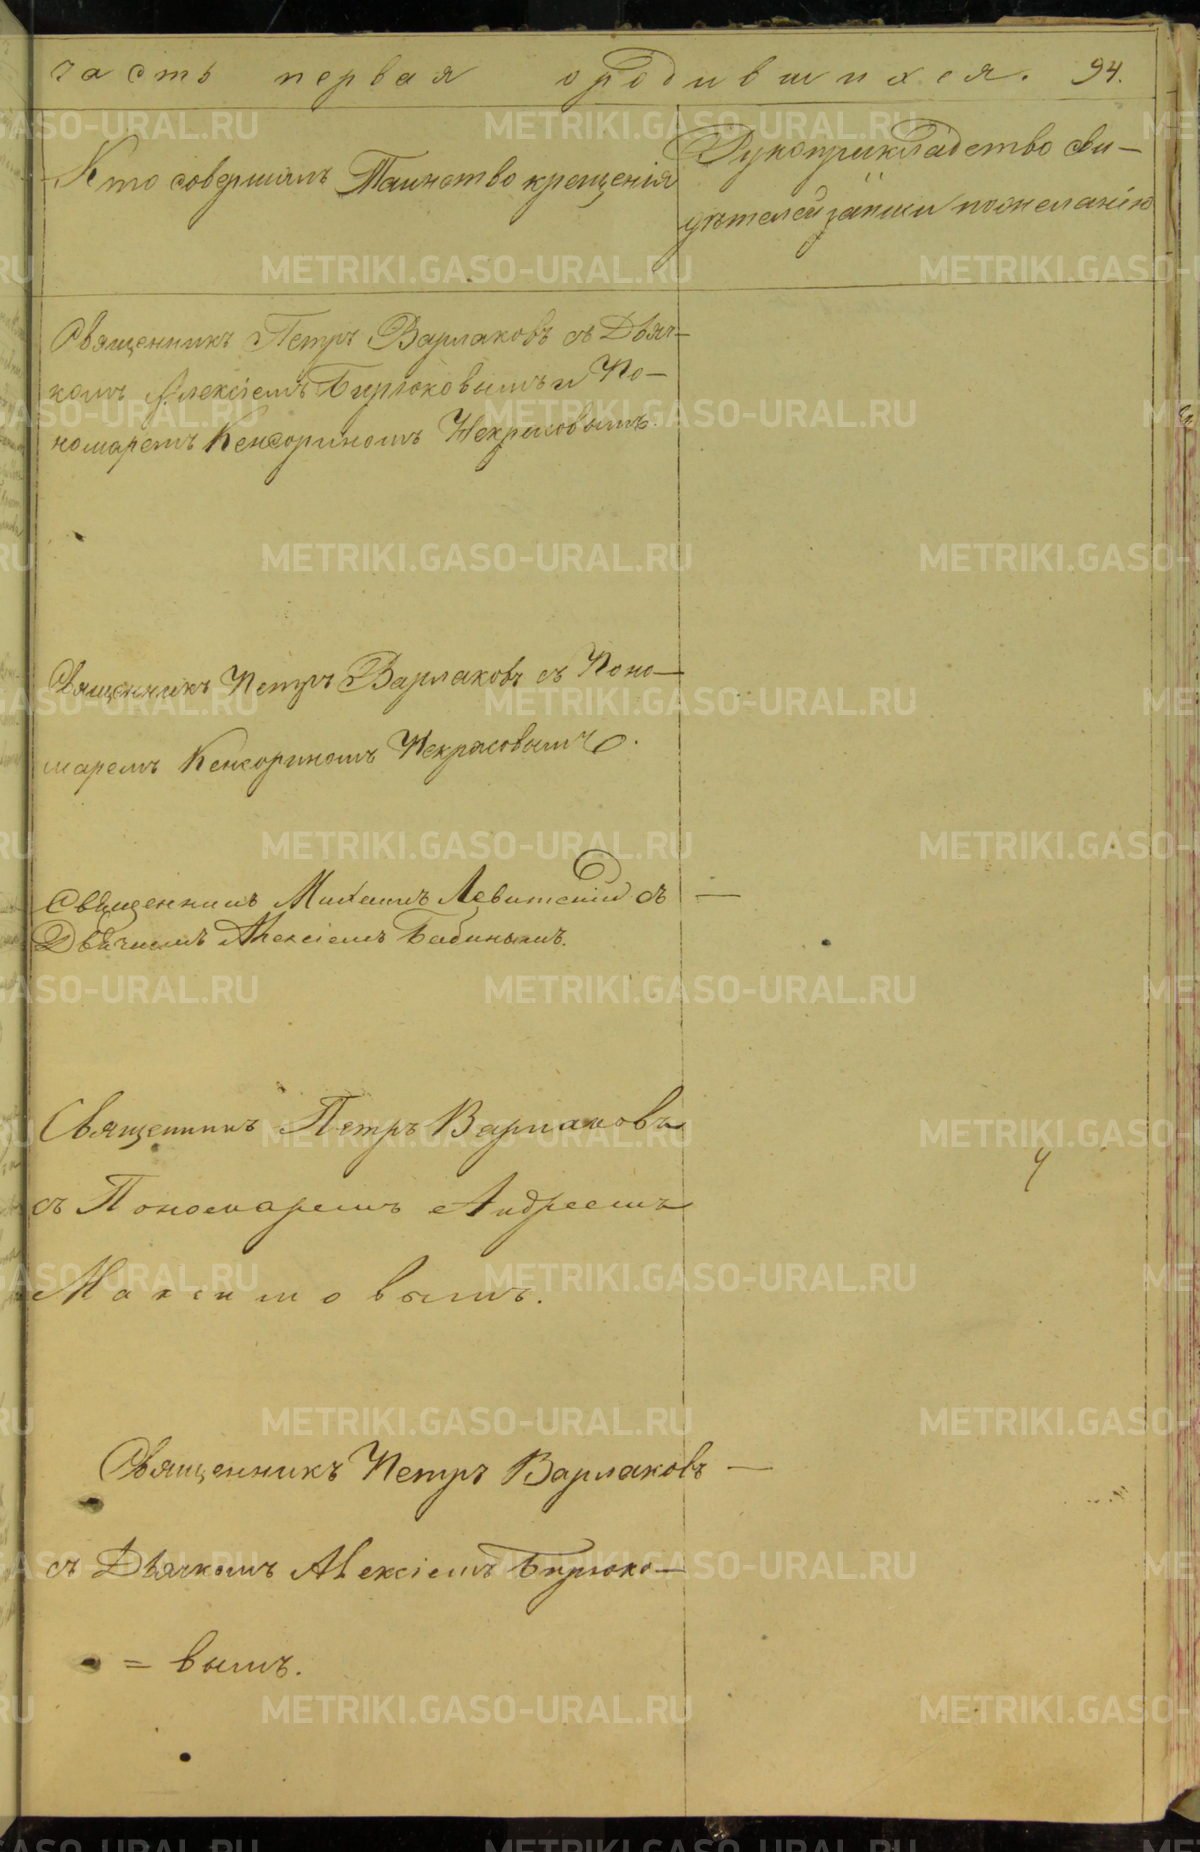 часть первая о родившихся. 94.
Кто совершалъ Таинство крещенія
Рукоприкладство сви-
дѣтелей записи по желанію
Священникъ Петръ Варлаковъ съ Дьяч-
комъ Алексіемъ Бирюковымъ и По-
номаремъ Кенсориномъ Некрасовымъ.
Священникъ Петръ Варлаковъ съ Поно-
маремъ Кенсориномъ Некрасовымъ.
Священникъ Михаилъ Левитскій съ —
Дьячкомъ Алексіемъ Бабинымъ.
Священникъ Петръ Варлаковъ
съ Пономаремъ Андреемъ
Максимовымъ.
Священникъ Петръ Варлаковъ —
съ Дьячкомъ Алексіемъ Бирюко-
= вымъ.
METRIKI.GASO-URAL.RU